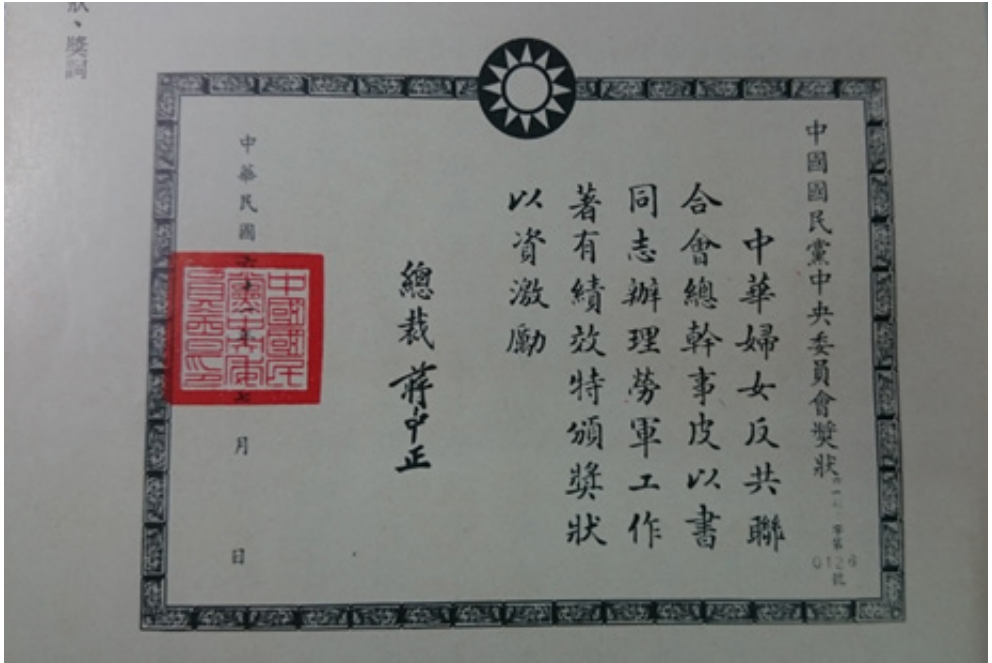 中國國民黨中央委員會獎狀
中華婦女反共聯
合會總幹事皮以書
同志辦理勞軍工作
著有績效特頒獎狀
以資激勵
總裁 蔣中正
中華民國六十一年七月 日
中國國民黨中央委員會印
、獎詞